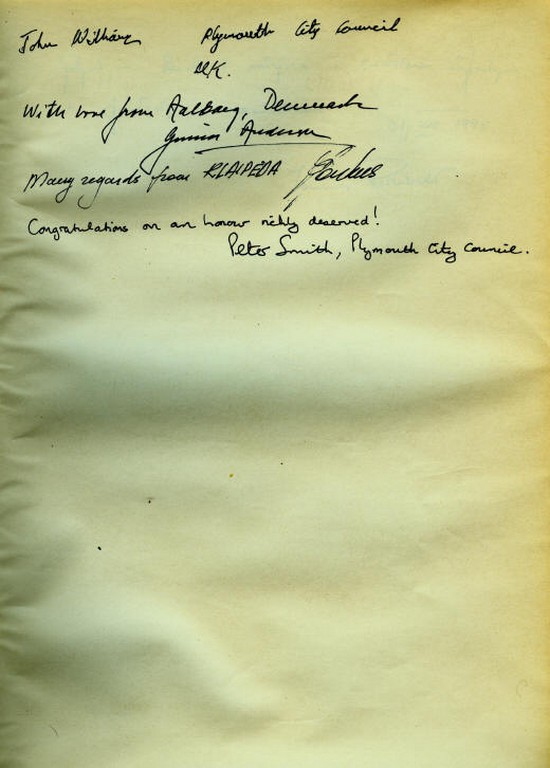 John Williams Plymouth City Council
U.K.
With love from Aalborg, Denmark
Gunnar Andersen
Many regards from KLAIPEDA
Congratulations on an honour richly deserved!
Peter Smith, Plymouth City Council.